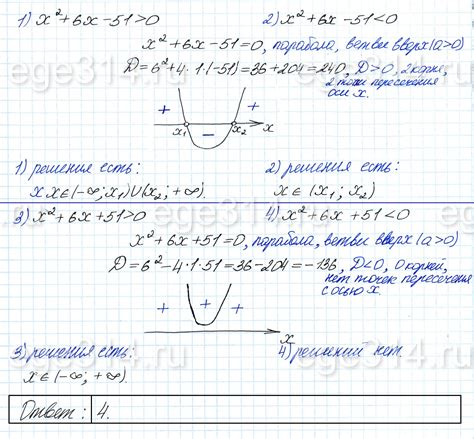 1) x²+6x-51>0 2) x²+6x-51<0
x²+6x-51=0, парабола, ветви вверх (a>0)
D=6²+4·1·(-51)=36+204=240, D>0, 2 корня,
2 точки пересечения
оси x.
+ x₁ − x₂ + x
1) решения есть: 2) решения есть:
x x∈(-∞; x₁)U(x₂; +∞). x∈(x₁; x₂)
3) x²+6x+51>0 4) x²+6x+51<0
x²+6x+51=0, парабола, ветви вверх (a>0)
D=6²-4·1·51=36-204=-136, D<0, 0 корней,
нет точек пересечения
с осью x.
+ + + x
3) решения есть: 4) решений нет.
x∈(-∞; +∞).
Ответ: 4.
ege314.ru